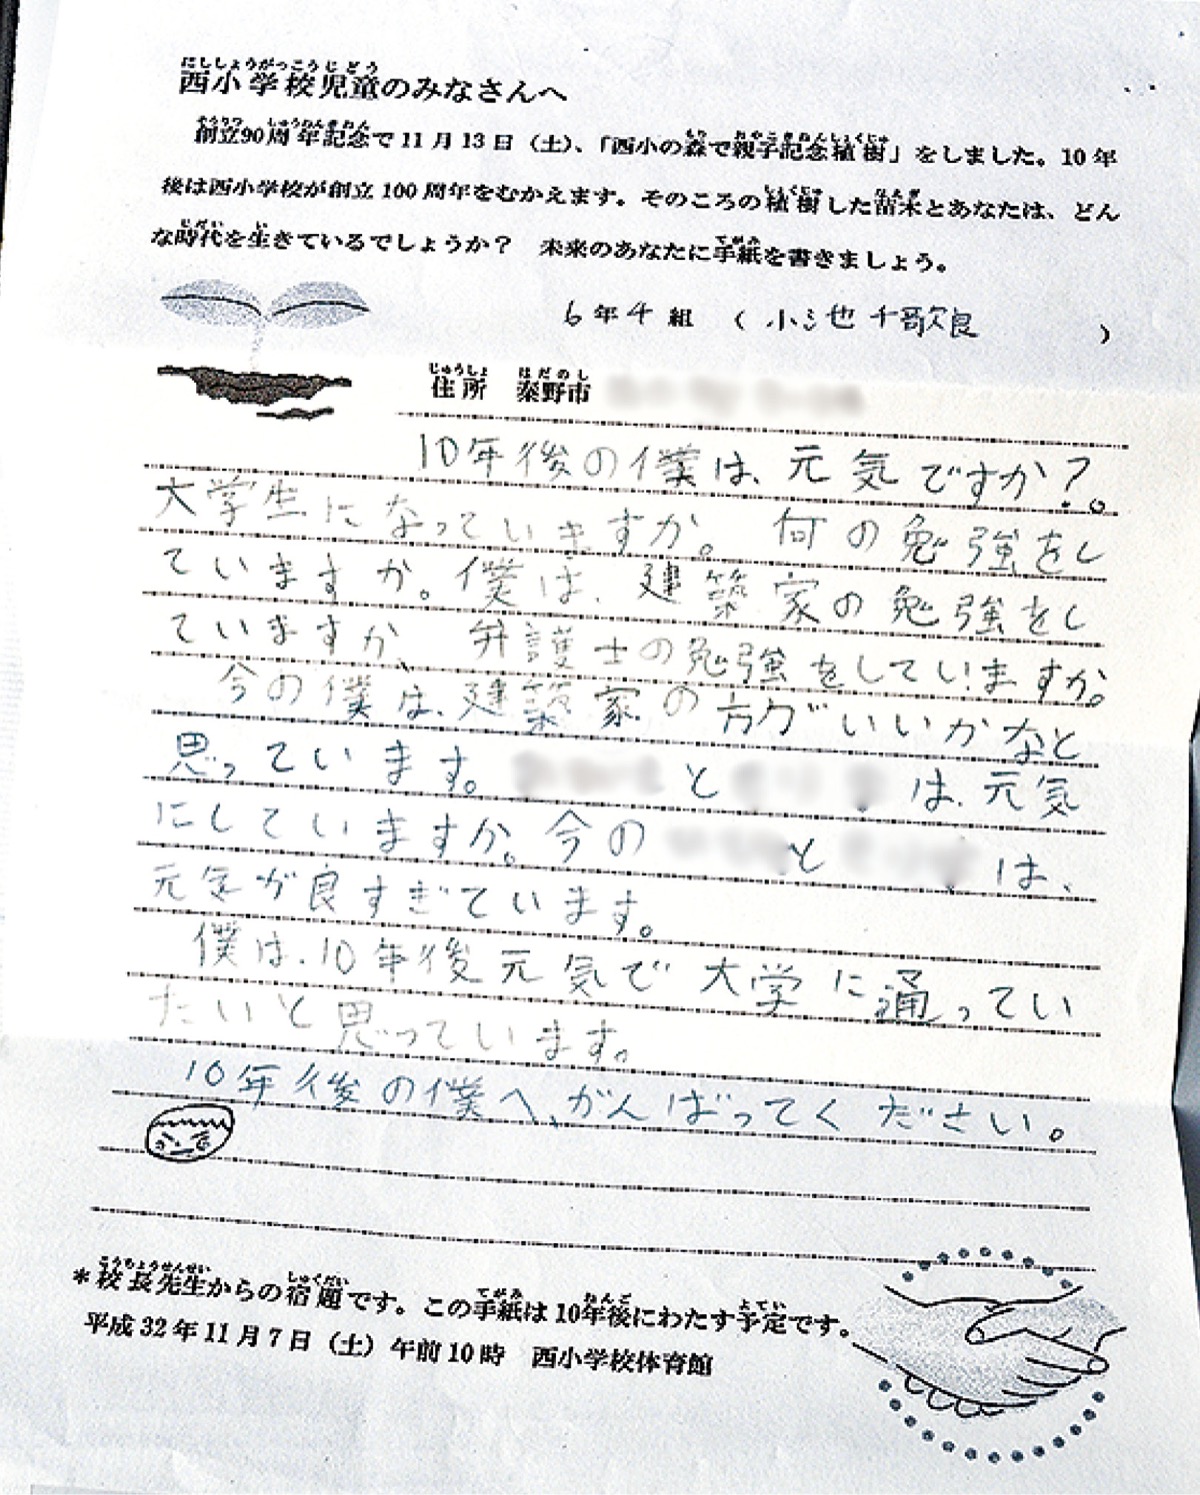 西小学校児童のみなさんへ
創立90周年記念で11月13日（土）、「西小の森で親子記念植樹」をしました。10年
後は西小学校が創立100周年をむかえます。そのころの植樹した苗木とあなたは、どん
な時代を生きているでしょうか？　未来のあなたに手紙を書きましょう。
6年4組　（小三也 千歌良　）
住所　秦野市
10年後の僕は、元気ですか？。
大学生になっていますか。何の勉強をし
ていますか。僕は、建築家の勉強をし
ていますか、弁護士の勉強をしていますか。
今の僕は、建築家の方がいいかなと
思っています。　と　は、元気
にしていますか。今の　と　は、
元気が良すぎています。
僕は、10年後元気で大学に通ってい
たいと思っています。
10年後の僕へ、がんばってください。
＊校長先生からの宿題です。この手紙は10年後にわたす予定です。
平成32年11月7日（土）午前10時　西小学校体育館